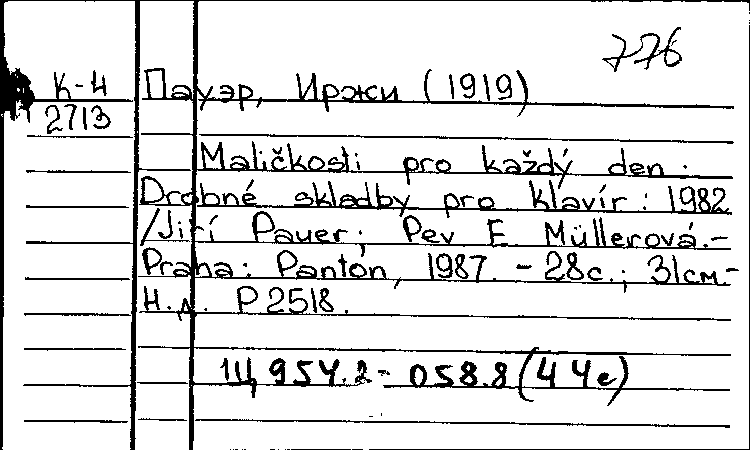 776
К-4 Пауэр, Иржи (1919)
2713
Maličkosti pro každý den :
Drobné skladby pro klavír : 1982
/Jiří Pauer; Рev E Müllerová.-
Praha : Panton, 1987. - 28с.; 31см.-
Н.д. P2518.
1Щ 954.2- 058.8(4 Че)